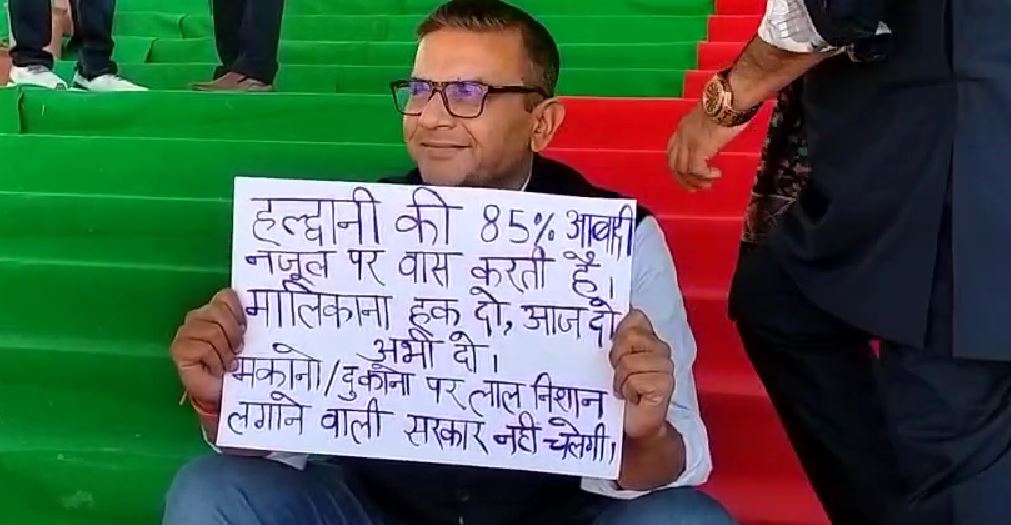 हल्द्वानी की 85% आबादी
नजूल पर वास करती है।
मालिकाना हक दो, आज दो
अभी दो।
मकानो/दुकानो पर लाल निशान
लगाने वाली सरकार नही चलेगी।